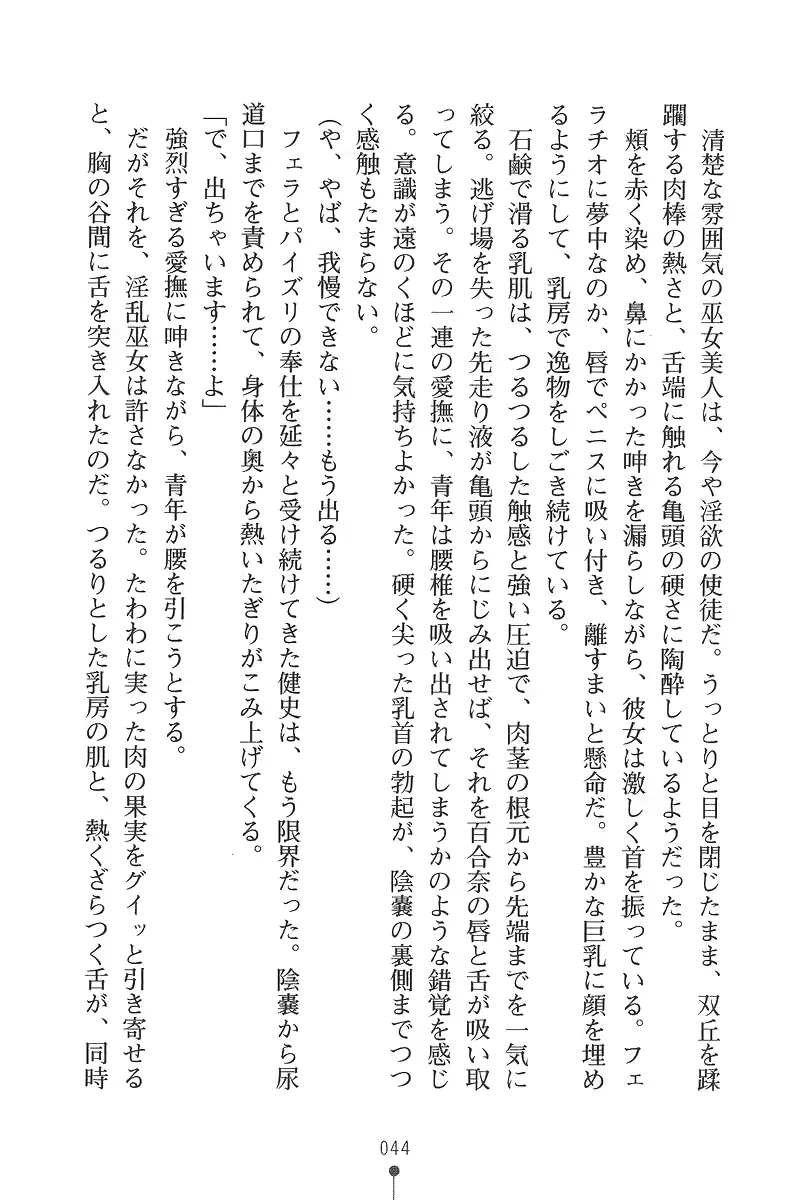 清楚な雰囲気の巫女美人は、今や淫欲の使徒だ。うっとりと目を閉じたまま、双丘を蹂
躙する肉棒の熱さと、舌端に触れる亀頭の硬さに陶酔しているようだった。
頬を赤く染め、鼻にかかった呻きを漏らしながら、彼女は激しく首を振っている。フェ
ラチオに夢中なのか、唇でペニスに吸い付き、離すまいと懸命だ。豊かな巨乳に顔を埋め
るようにして、乳房で逸物をしごき続けている。
石鹸で滑る乳肌は、つるつるした触感と強い圧迫で、肉茎の根元から先端までを一気に
絞る。逃げ場を失った先走り液が亀頭からにじみ出せば、それを百合奈の唇と舌が吸い取
ってしまう。その一連の愛撫に、青年は腰椎を吸い出されてしまうかのような錯覚を感じ
る。意識が遠のくほどに気持ちよかった。硬く尖った乳首の勃起が、陰嚢の裏側までつつ
く感触もたまらない。
(や、やば、我慢できない……もう出る……)
フェラとパイズリの奉仕を延々と受け続けてきた健史は、もう限界だった。陰嚢から尿
道口までを責められて、身体の奥から熱いたぎりがこみ上げてくる。
「で、出ちゃいます……よ」
強烈すぎる愛撫に呻きながら、青年が腰を引こうとする。
だがそれを、淫乱巫女は許さなかった。たわわに実った肉の果実をグイッと引き寄せる
と、胸の谷間に舌を突き入れたのだ。つるりとした乳房の肌と、熱くざらつく舌が、同時
044